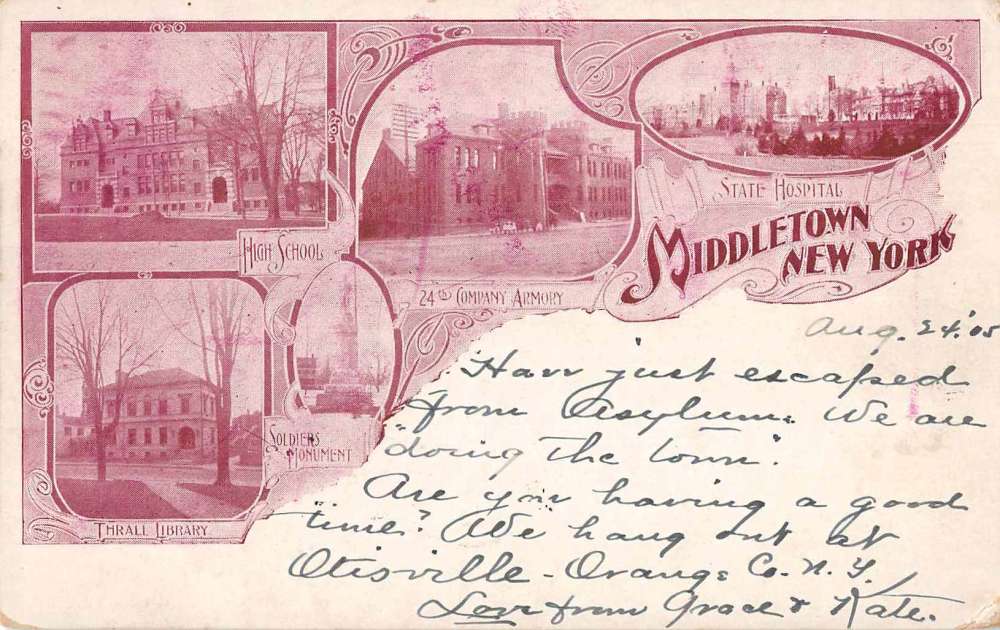 HIGH SCHOOL
24th COMPANY ARMORY
STATE HOSPITAL
MIDDLETOWN
NEW YORK
THRALL LIBRARY
SOLDIERS
MONUMENT
Aug. 24. '05
Have just escaped
from Asylum. We are
"doing the town".
Are you having a good
time? We hang out at
Otisville - Orange Co. N. Y.
Love from Grace & Kate.